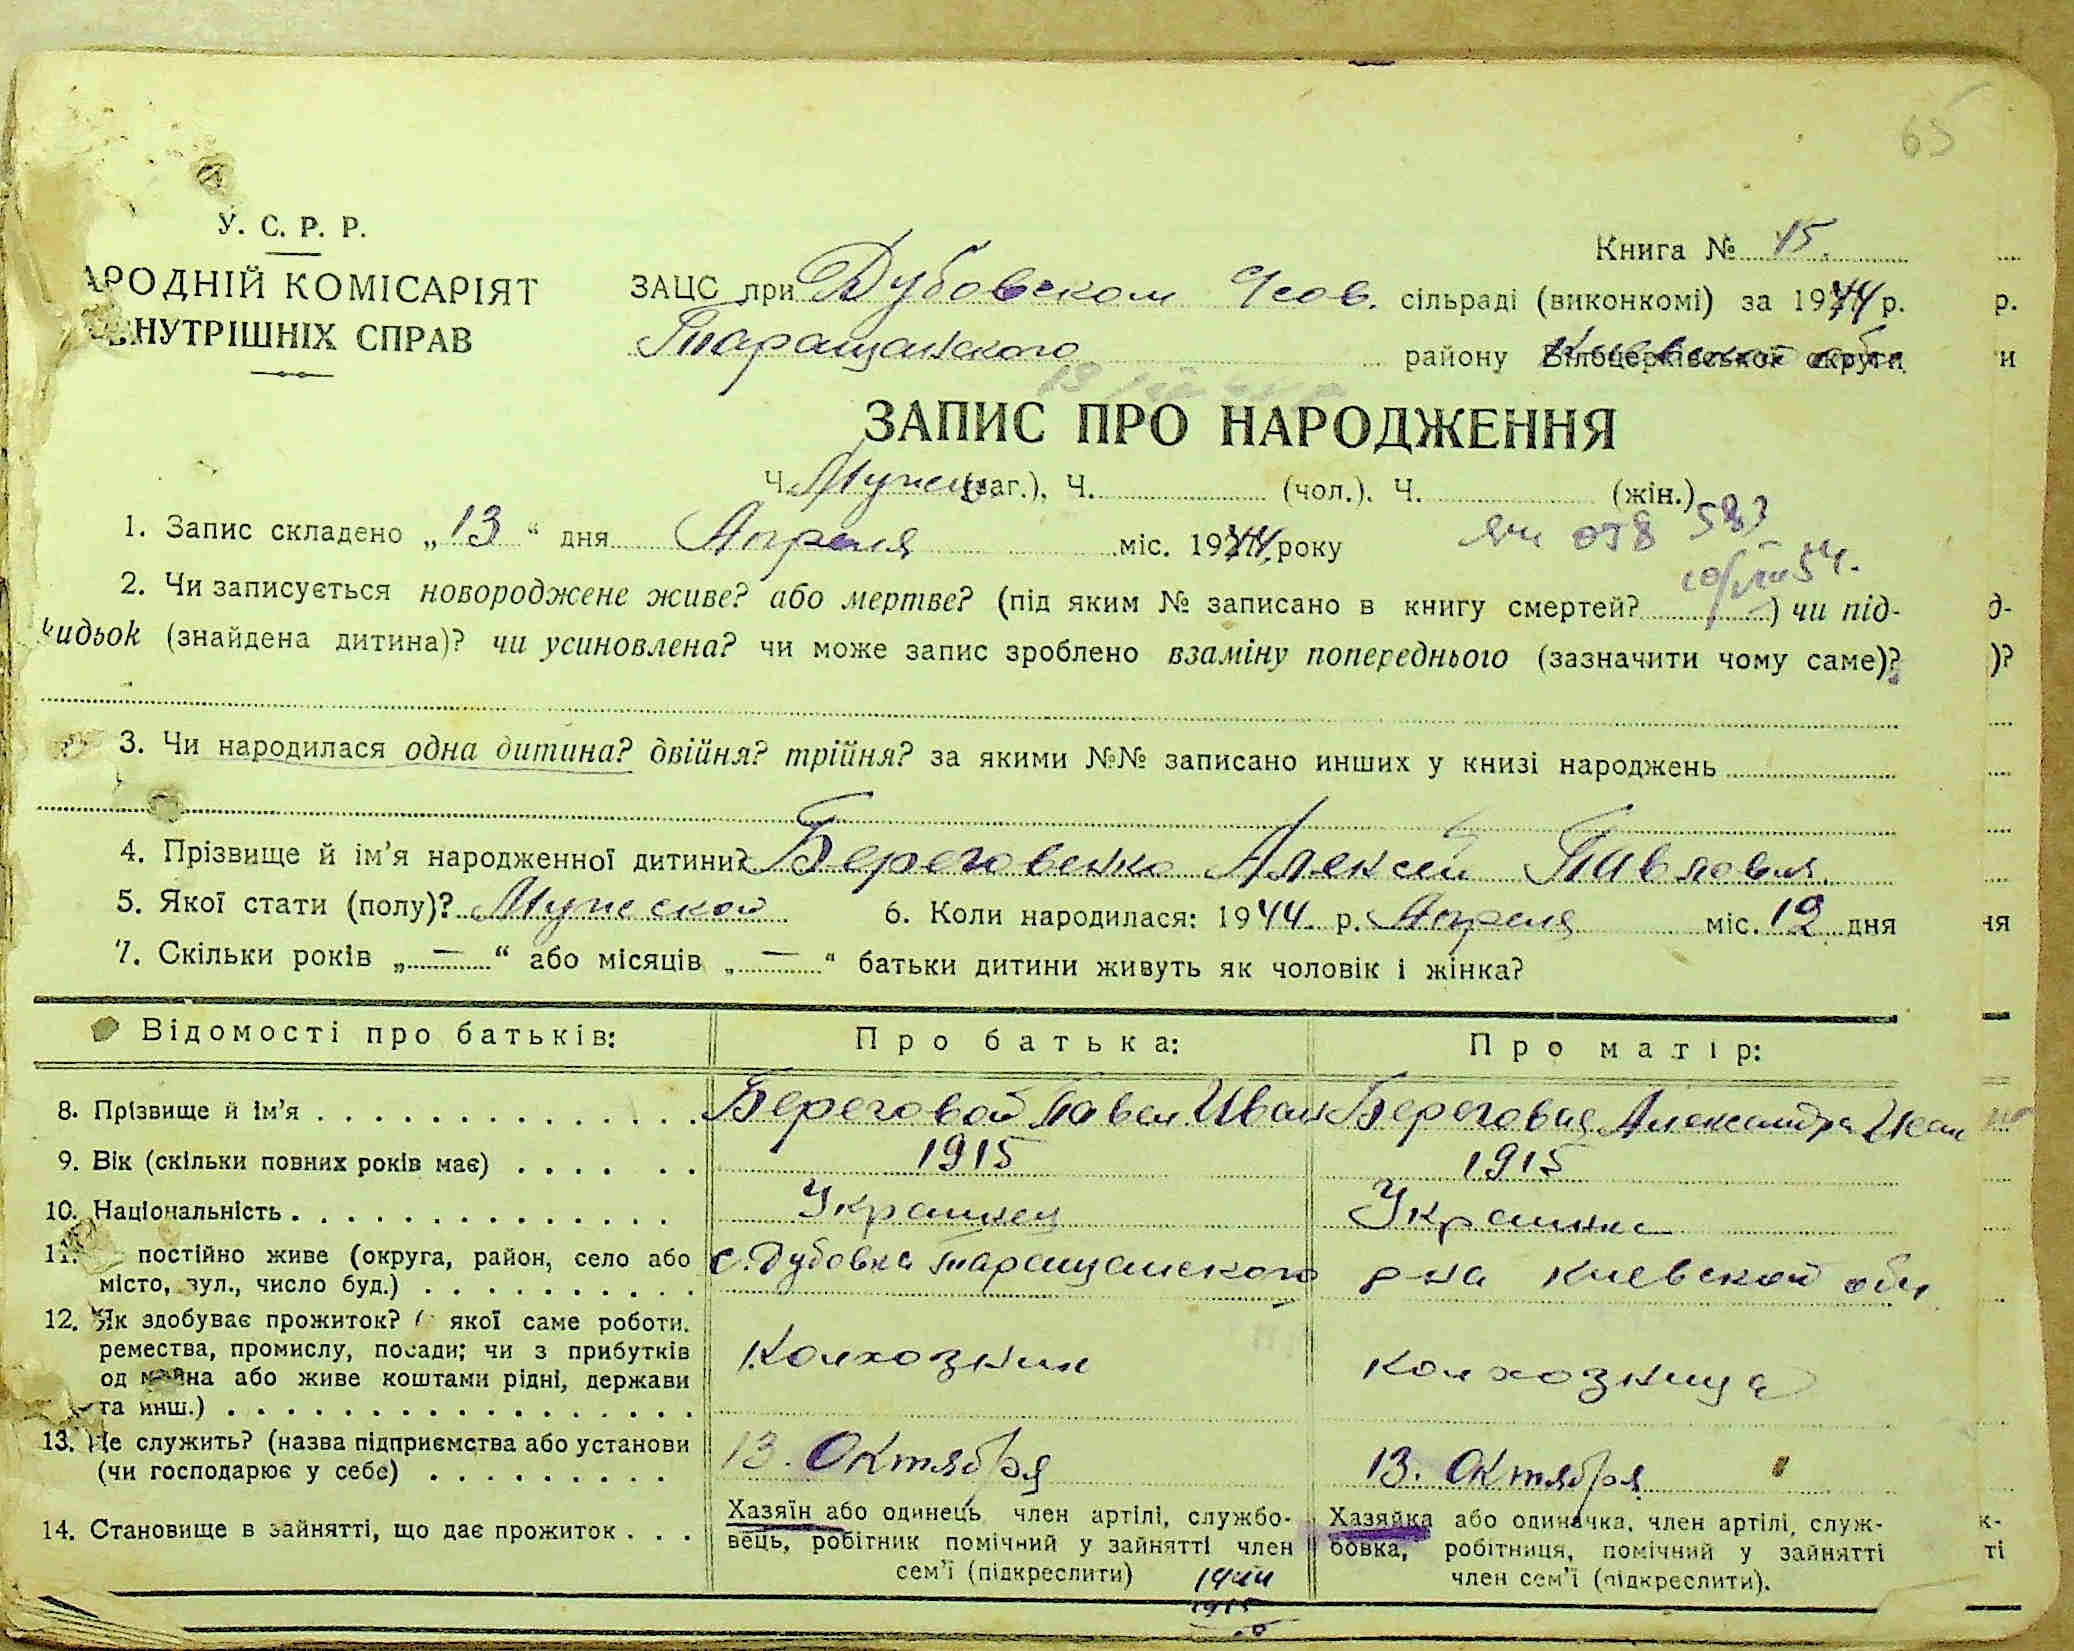 65
У. С. Р. Р.
АРОДНІЙ КОМІСАРІЯТ
ВНУТРІШНІХ СПРАВ
Книга № 15.
ЗАЦС при Дубовском сільраді (виконкомі) за 1944 р.
Таращанского району Білоцерківської округи
ЗАПИС ПРО НАРОДЖЕННЯ
Ч. (заг.), Ч. (чол.), Ч. (жін.)
1. Запис складено „13“ дня Апреля міс. 1944 року
058 583
2. Чи записується новороджене живе? або мертве? (під яким № записано в книгу смертей? ) чи під-
кидьок (знайдена дитина)? чи усиновлена? чи може запис зроблено взаміну попереднього (зазначити чому саме)?
3. Чи народилася одна дитина? двійня? трійня? за якими №№ записано инших у книзі народжень
4. Прізвище й ім’я народженної дитини? Береговенко Алексей Павлович
5. Якої стати (полу)? Мужской 6. Коли народилася: 1944 р. Апреля міс. 12 дня
7. Скільки років „—“ або місяців „—“ батьки дитини живуть як чоловік і жінка?
Відомості про батьків: Про батька: Про матір:
8. Прізвище й ім’я Береговой Павел Иван Береговая Александра Иван
9. Вік (скільки повних років має) 1915 1915
10. Національність Украинец Украинка
11. постійно живе (округа, район, село або
місто, вул., число буд.) с. Дубовка Таращанского р-на Киевской обл
12. Як здобуває прожиток? ( якої саме роботи.
ремества, промислу, посади; чи з прибутків
од майна або живе коштами рідні, держави
та инш.) Колхозник колхозница
13. Де служить? (назва підприємства або установи
(чи господарює у себе) 13. Октября 13. Октября
14. Становище в зайнятті, що дає прожиток
Хазяїн або одинець член артілі, службо-
вець, робітник помічний у зайнятті член
сем’ї (підкреслити)
Хазяйка або одиначка, член артілі, служ-
бовка, робітниця, помічний у зайнятті
член сем’ї (підкреслити).
1944
1915